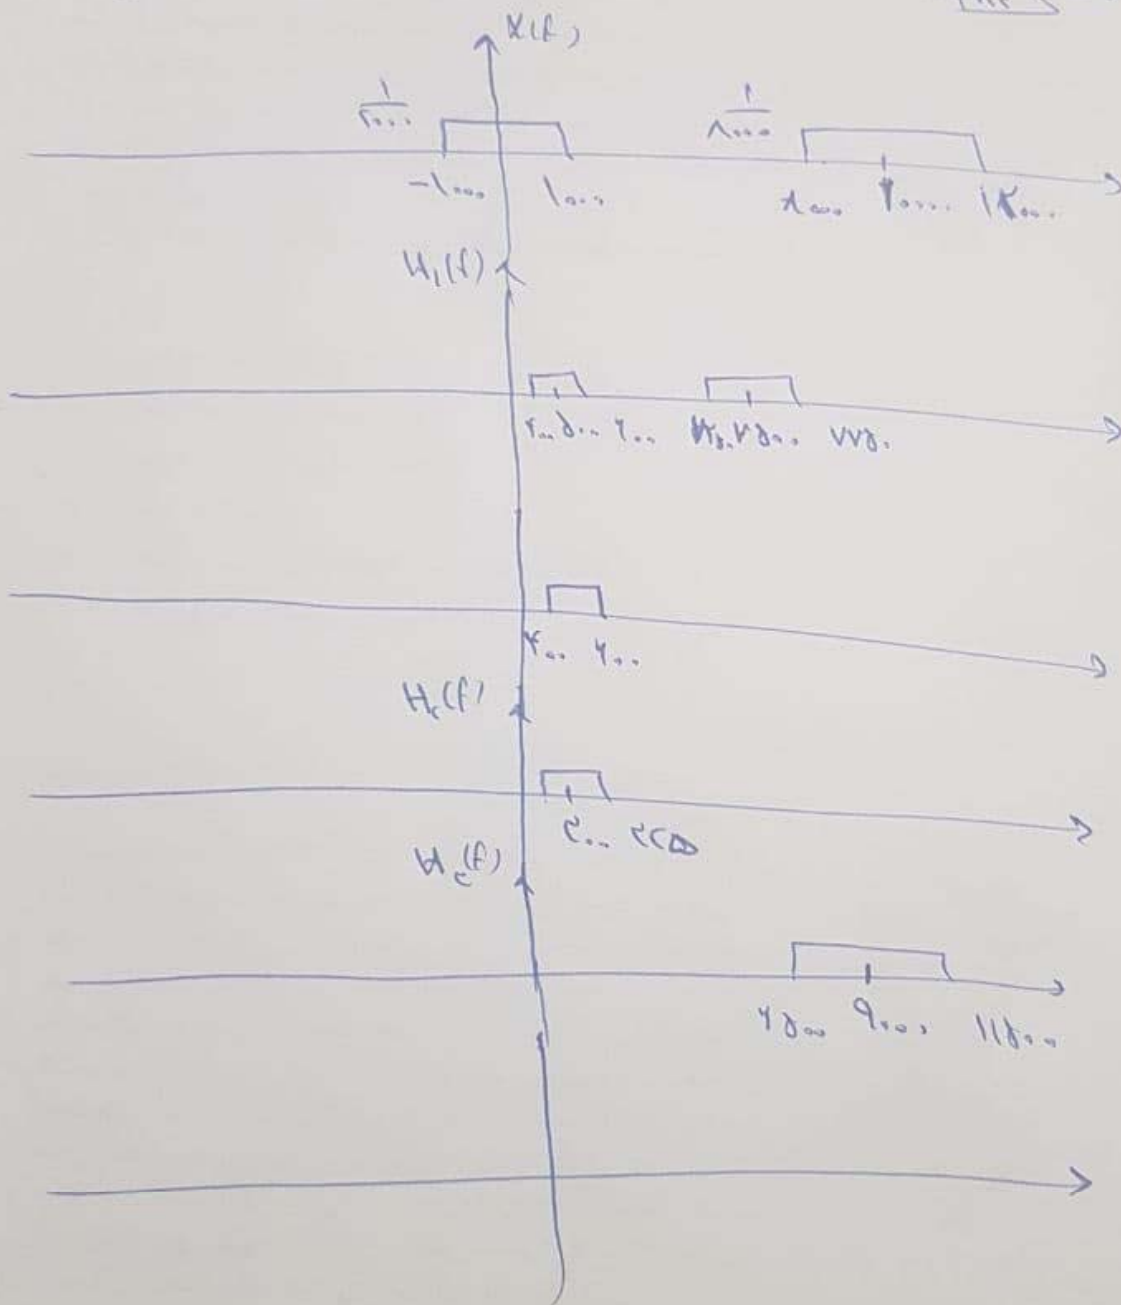 X(f)
۱/۲۰۰۰ ۱/۸۰۰۰
-۱۰۰۰ ۱۰۰۰ ۸۰۰۰ ۱۲۰۰۰
H₁(f)
۵۰۰ ۶۰۰ ۷۵۰۰ ۷۷۵۰
۴۰۰ ۶۰۰
H₂(f)
۳۰۰ ۳۲۵
H₃(f)
۶۵۰۰ ۹۰۰۰ ۱۱۵۰۰